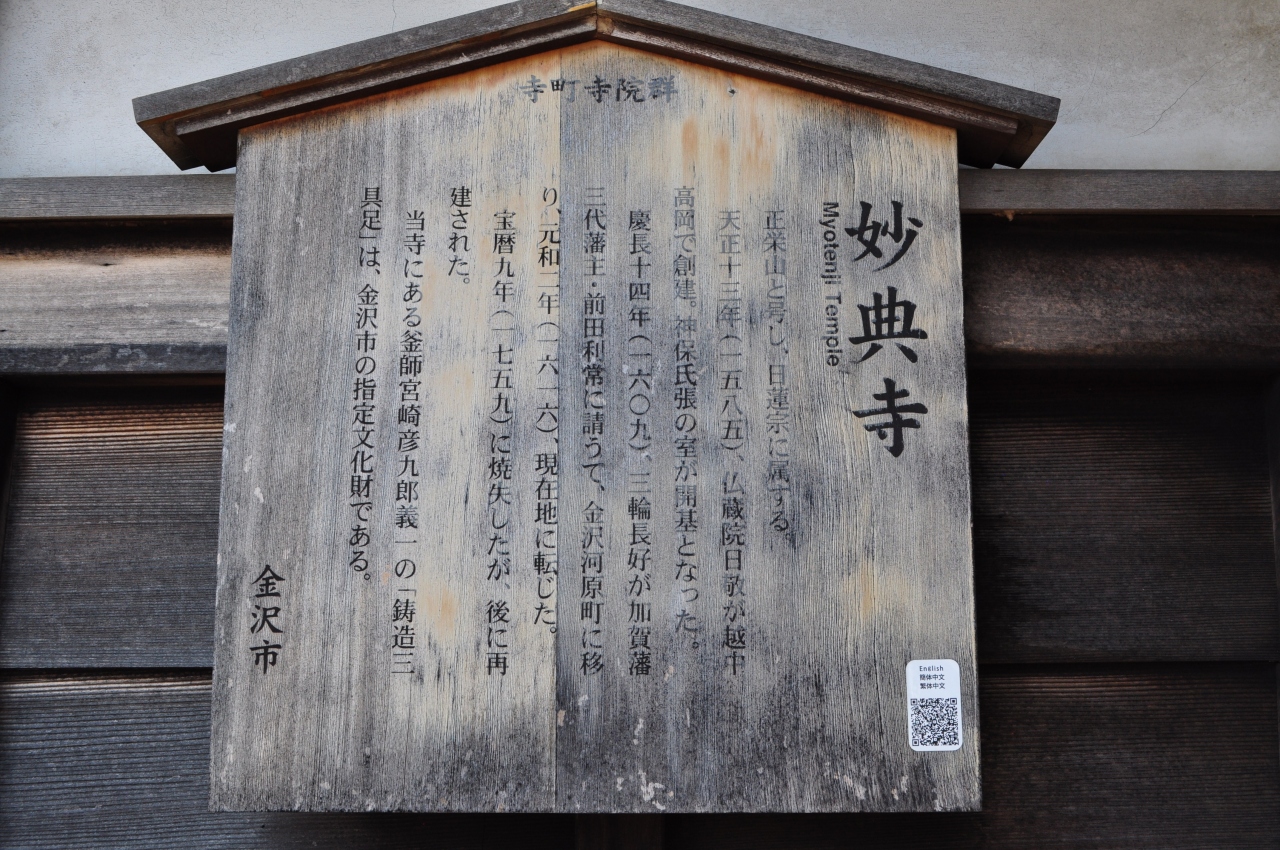 寺町寺院群
妙典寺
Myotenji Temple
正栄山と号し、日蓮宗に属する。
天正十三年(一五八五)、仏蔵院日敬が越中
高岡で創建。神保氏張の室が開基となった。
慶長十四年(一六〇九)、三輪長好が加賀藩
三代藩主・前田利常に請うて、金沢河原町に移
り、元和二年(一六一六)、現在地に転じた。
宝暦九年(一七五九)に焼失したが、後に再
建された。
当寺にある釜師宮崎彦九郎義一の「鋳造三
具足」は、金沢市の指定文化財である。
金沢市
English
簡体中文
繁体中文